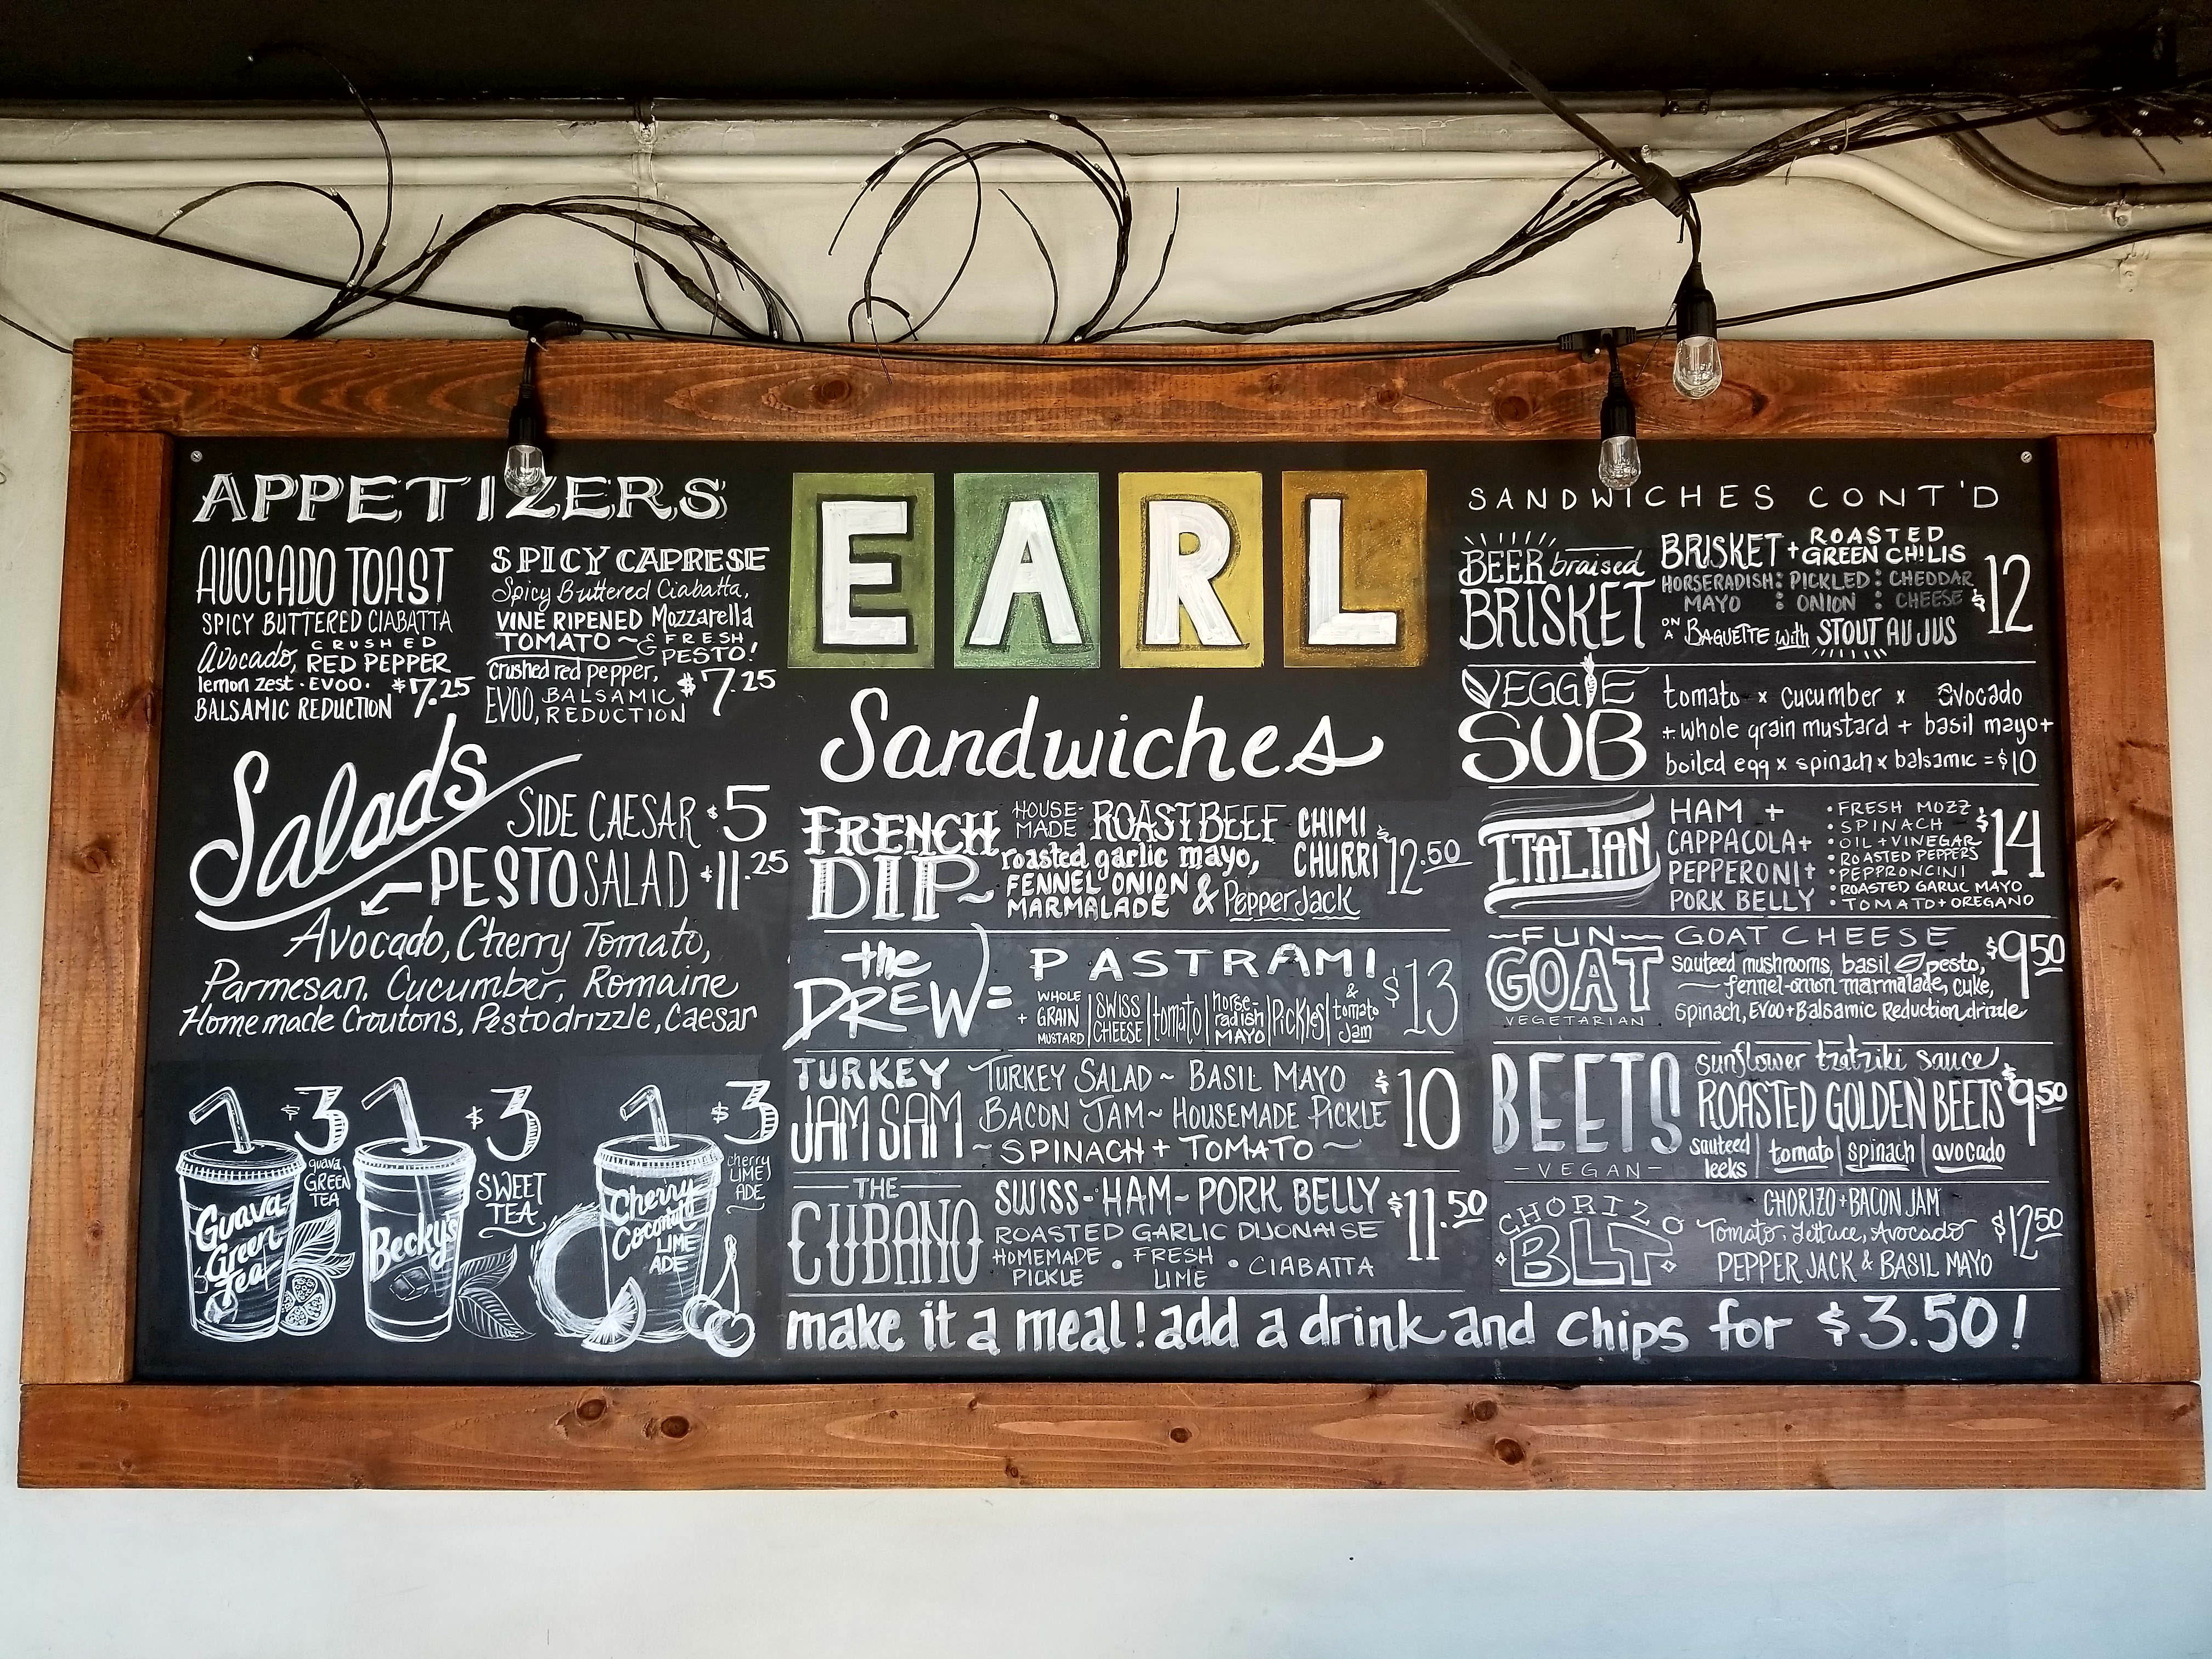 APPETIZERS
AVOCADO TOAST
SPICY BUTTERED CIABATTA
CRUSHED
Avocado, RED PEPPER
lemon zest · EVOO. $7.25
BALSAMIC REDUCTION
SPICY CAPRESE
Spicy Buttered Ciabatta,
VINE RIPENED Mozzarella
TOMATO ~ & FRESH
PESTO!
Crushed red pepper,
EVOO, BALSAMIC $7.25
REDUCTION
Salads
SIDE CAESAR $5
PESTO SALAD $11.25
Avocado, Cherry Tomato,
Parmesan, Cucumber, Romaine
Homemade Croutons, Pesto drizzle, Caesar
$3
guava
GREEN
TEA
Guava
Green
Tea
$3
SWEET
TEA
Becky's
$3
cherry
LIME
ADE
Cherry
Coconut
LIME
ADE
EARL
Sandwiches
FRENCH
DIP~
HOUSE-
MADE ROAST BEEF CHIMI
roasted garlic mayo, CHURRI $12.50
FENNEL ONION
MARMALADE & Pepper Jack
the
DREW) = PASTRAMI $13
+ WHOLE GRAIN MUSTARD | SWISS CHEESE | tomato | horse-radish MAYO | PICKLES | & tomato Jam
TURKEY
JAM SAM
TURKEY SALAD ~ BASIL MAYO
BACON JAM ~ HOUSEMADE PICKLE $10
~ SPINACH + TOMATO ~
THE
CUBANO
SWISS - HAM - PORK BELLY $11.50
ROASTED GARLIC DIJONAISE
HOMEMADE PICKLE • FRESH LIME • CIABATTA
SANDWICHES CONT'D
BEER braised
BRISKET
BRISKET + ROASTED GREEN CHILIS
HORSERADISH MAYO : PICKLED ONION : CHEDDAR CHEESE $12
ON A BAGUETTE with STOUT AU JUS
VEGGIE
SUB
tomato x cucumber x avocado
+ whole grain mustard + basil mayo +
boiled egg x spinach x balsamic = $10
ITALIAN
HAM +
CAPPACOLA +
PEPPERONI +
PORK BELLY
• FRESH MOZZ
• SPINACH
• OIL + VINEGAR
• ROASTED PEPPERS
• PEPPRONCINI
• ROASTED GARLIC MAYO
• TOMATO + OREGANO
$14
FUN
GOAT
VEGETARIAN
GOAT CHEESE
sauteed mushrooms, basil pesto, $9.50
fennel-onion marmalade, cuke,
spinach, EVOO + Balsamic Reduction drizzle
BEETS
- VEGAN -
sunflower tzatziki sauce
ROASTED GOLDEN BEETS $9.50
sauteed leeks | tomato | spinach | avocado
CHORIZO
BLT
CHORIZO + BACON JAM
Tomato, Lettuce, Avocado $12.50
PEPPER JACK & BASIL MAYO
make it a meal! add a drink and chips for $3.50!